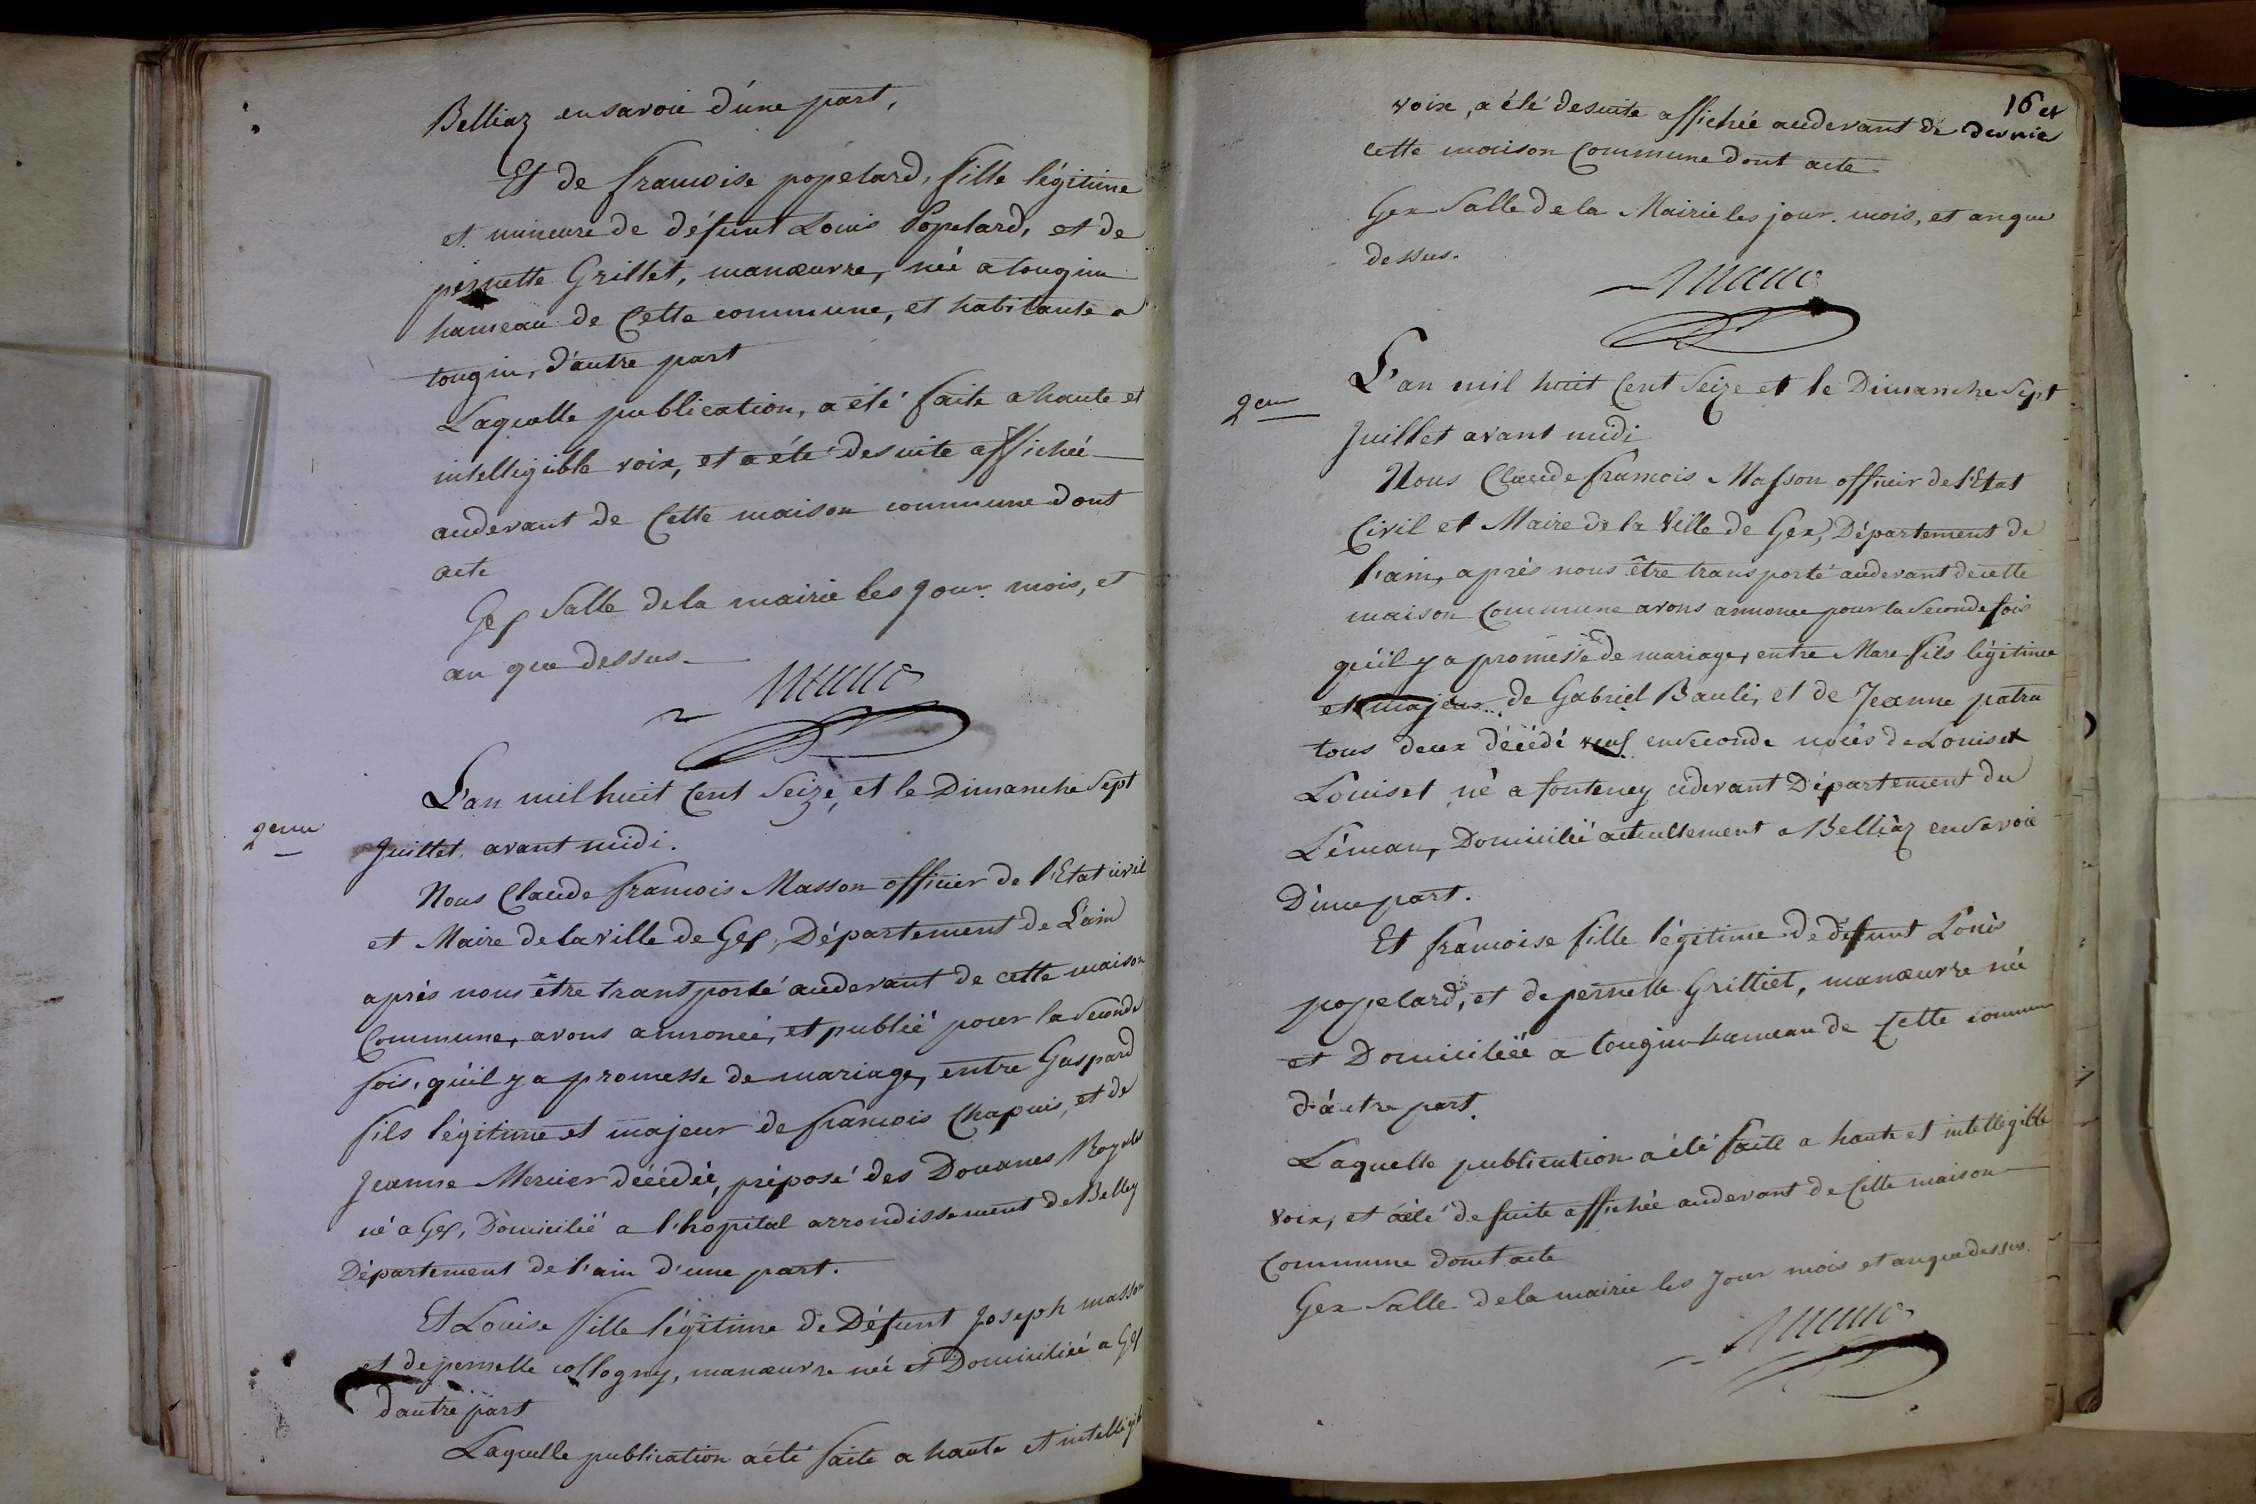 Belliaz en savoie d'une part,
Et de francoise popelard, fille légitime
et mineure de défunt Louis Popelard, et de
pernette Grillet, manœuvre, née a tougin
hameau de Cette commune, et habitante a
tougin, d'autre part
Laquelle publication, a été faite a haute et
intelligible voix, et a été desuite affichée
audevant de Cette maison commune dont
acte
Gex Salle de la mairie les jour. mois, et
an que dessus.
L'an mil huit Cent Seize, et le Dimanche Sept
2eme
Juillet. avant midi.
Nous Claude francois Masson officier de l'Etat civil
et Maire de la ville de Gex, Département de L'ain
après nous être transporté audevant de cette maison
Commune, avons annoncé, et publié pour la Seconde
fois, qu'il y a promesse de mariage, entre Gaspard
fils légitime et majeur de francois Chapuis, et de
Jeanne Mercier décédée, préposé des Douanes Royales
né a Gex, Domicilié a l'hopital arrondissement de Belley
Département de l'ain d'une part.
Et Louise fille légitime de Défunt Joseph masson
et de pernette collogny, manœuvre née et Domiciliée a Gex
d'autre part
Laquelle publication a été faite a haute et intelligib
16 et
dernie
voix, a été desuite affichée audevant de
cette maison Commune dont acte
Gex Salle de la Mairie les jour. mois, et an que
dessus.
L'an mil huit Cent Seize et le Dimanche Sept
2em
Juillet avant midi
Nous Claude francois Masson officier de l'Etat
Civil et Maire de la Ville de Gex, Département de
l'ain, après nous être transporté audevant de cette
maison Commune avons annoncé pour la Seconde fois
qu'il y a promesse de mariage, entre Marc fils légitime
et majeur de Gabriel Bauli, et de Jeanne patru
tous deux décédé veuf en Seconde noces de Louiset
Louiset né a fonteney cidevant Département du
Léman, Domicilié actuellement a Belliaz en Savoie
D'une part.
Et francoise fille légitime de défunt Louis
popelard, et de pernette Grilliet, manœuvre née
et Domiciliée a tougin hameau de Cette commune
d'autre part.
Laquelle publication a été faite a haute et intellegible
voix, et a été de suite affichée audevant de Cette maison
Commune dont acte
Gex Salle de la mairie les jour mois et an que dessus.